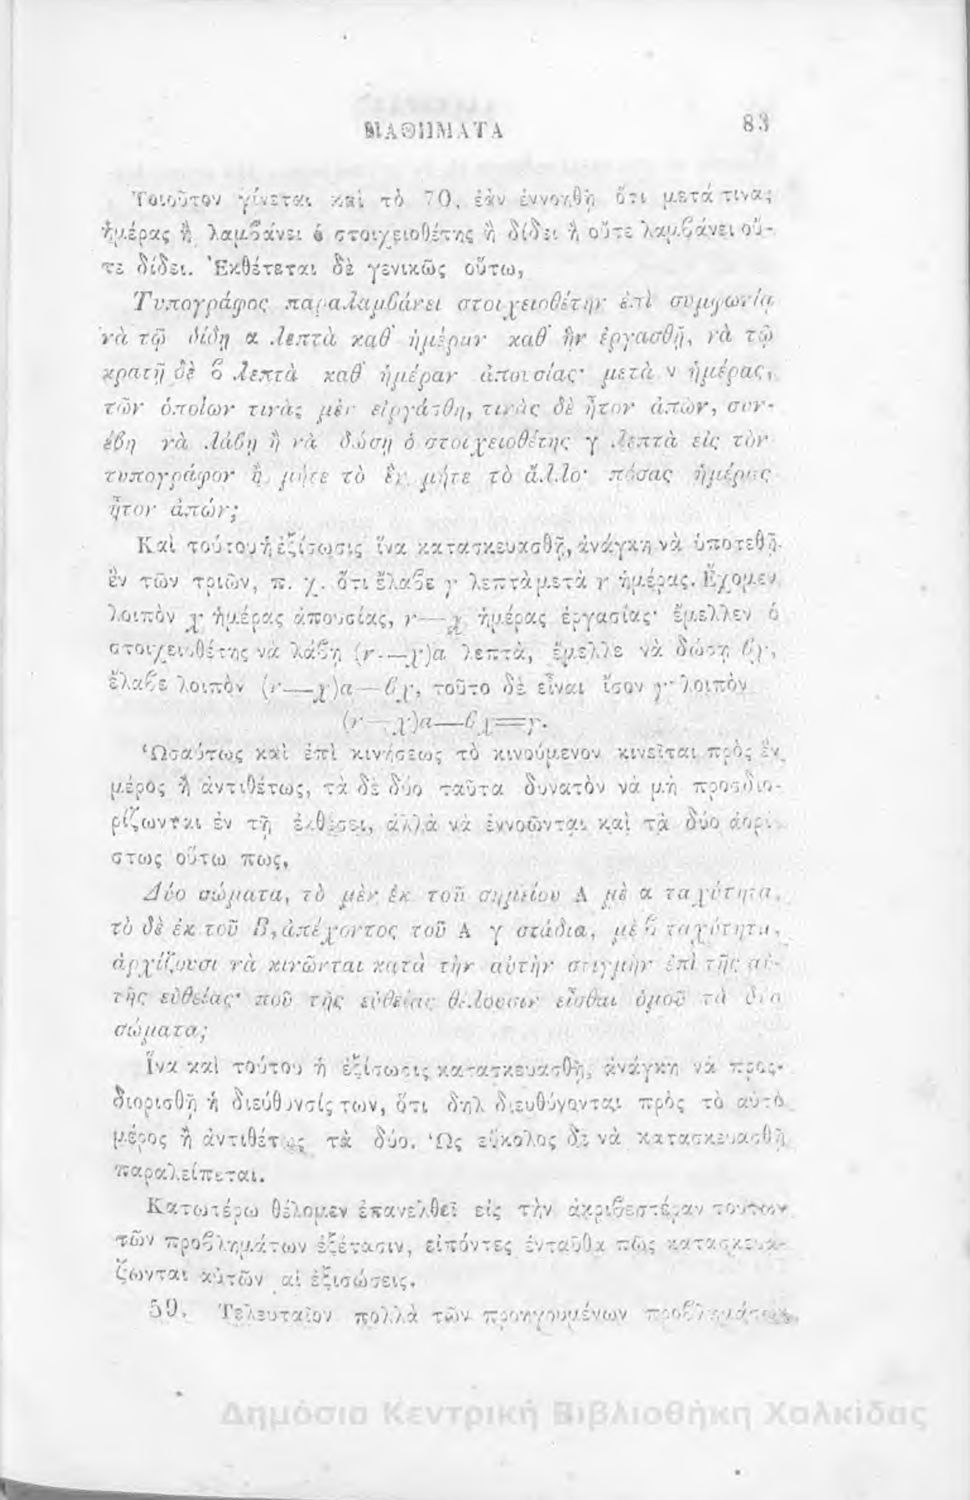 ΜΑΘΗΜΑΤΑ 83
Τοιοῦτον γίνεται καὶ τὸ 70, ἐὰν ἐννοηθῇ ὅτι μετά τινας
ἡμέρας ἢ λαμβάνει ὁ στοιχειοθέτης ἢ δίδει ἢ οὔτε λαμβάνει οὔ-
τε δίδει. Ἐκθέτεται δὲ γενικῶς οὕτω,
Τυπογράφος παραλαμβάνει στοιχειοθέτην ἐπὶ συμφωνίᾳ
νὰ τῷ δίδῃ α λεπτὰ καθ' ἡμέραν καθ' ἣν ἐργασθῇ, νὰ τῷ
κρατῇ δὲ β λεπτὰ καθ' ἡμέραν ἀπουσίας· μετὰ ν ἡμέρας,
τῶν ὁποίων τινὰς μὲν εἰργάσθη, τινὰς δὲ ἦτον ἀπών, συν-
έβη νὰ λάβῃ ἢ νὰ δώσῃ ὁ στοιχειοθέτης γ λεπτὰ εἰς τὸν
τυπογράφον ἢ μήτε τὸ ἓν μήτε τὸ ἄλλο· πόσας ἡμέρας
ἦτον ἀπών;
Καὶ τούτου ἡ ἐξίσωσις ἵνα κατασκευασθῇ, ἀνάγκη νὰ ὑποτεθῇ
ἓν τῶν τριῶν, π. χ. ὅτι ἔλαβε γ λεπτὰ μετὰ ν ἡμέρας. Ἔχομεν
λοιπὸν χ ἡμέρας ἀπουσίας, ν—χ ἡμέρας ἐργασίας· ἔμελλεν ὁ
στοιχειοθέτης νὰ λάβῃ (ν—χ)α λεπτὰ, ἔμελλε νὰ δώσῃ βχ,
ἔλαβε λοιπὸν (ν—χ)α—βχ, τοῦτο δὲ εἶναι ἴσον γ· λοιπὸν
(ν—χ)α—βχ=γ.
Ὡσαύτως καὶ ἐπὶ κινήσεως τὸ κινούμενον κινεῖται πρὸς ἓν
μέρος ἢ ἀντιθέτως, τὰ δὲ δύο ταῦτα δυνατὸν νὰ μὴ προσδιο-
ρίζωνται ἐν τῇ ἐκθέσει, ἀλλὰ νὰ ἐννοῶνται καὶ τὰ δύο ἀορί-
στως οὕτω πως,
Δύο σώματα, τὸ μὲν ἐκ τοῦ σημείου Α μὲ α ταχύτητα,
τὸ δὲ ἐκ τοῦ Β, ἀπέχοντος τοῦ Α γ στάδια, μὲ β ταχύτητα,
ἀρχίζουσι νὰ κινῶνται κατὰ τὴν αὐτὴν στιγμὴν ἐπὶ τῆς αὐ-
τῆς εὐθείας· ποῦ τῆς εὐθείας θέλουσιν εἶσθαι ὁμοῦ τὰ δύο
σώματα;
Ἵνα καὶ τούτου ἡ ἐξίσωσις κατασκευασθῇ, ἀνάγκη νὰ προς-
διορισθῇ ἡ διεύθυνσίς των, ὅτι δηλ. διευθύνονται πρὸς τὸ αὐτὸ
μέρος ἢ ἀντιθέτως τὰ δύο. Ὡς εὔκολος δὲ νὰ κατασκευασθῇ
παραλείπεται.
Κατωτέρω θέλομεν ἐπανελθεῖ εἰς τὴν ἀκριβεστέραν τούτων
τῶν προβλημάτων ἐξέτασιν, εἰπόντες ἐνταῦθα πῶς κατασκευά-
ζωνται αὐτῶν αἱ ἐξισώσεις.
59. Τελευταῖον πολλὰ τῶν προηγουμένων προβλημάτων
Δημόσια Κεντρική Βιβλιοθήκη Χαλκίδας